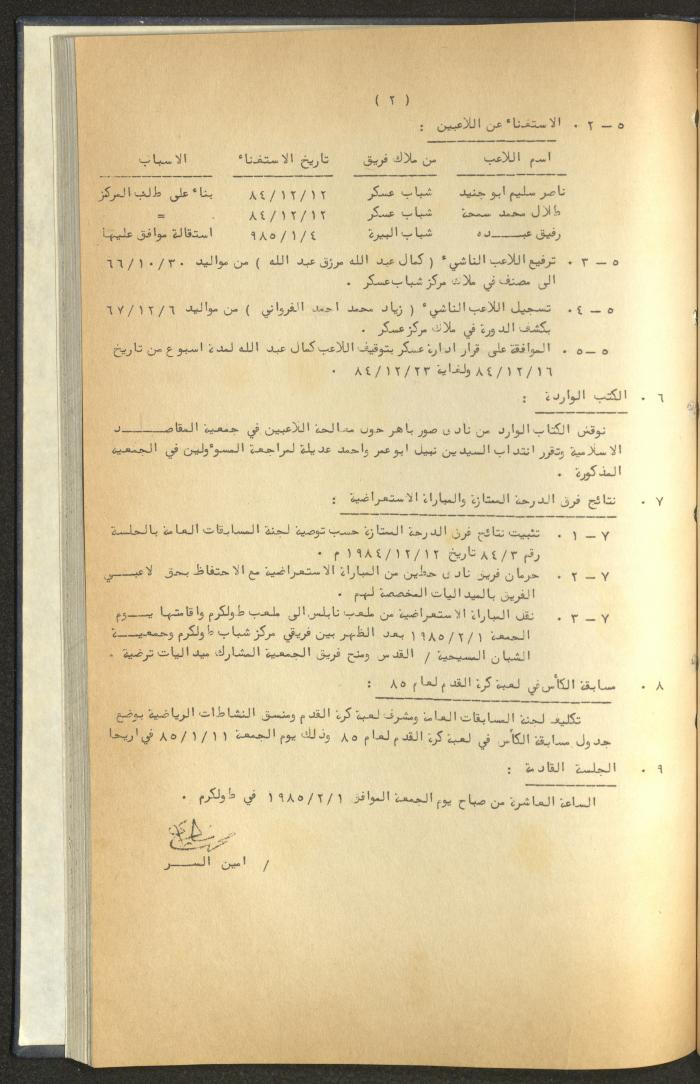 ( ٢ )
٥ – ٢ ٠ الاستغناء عن اللاعبين :
اسم اللاعب من ملاك فريق تاريخ الاستغناء الاسباب
ناصر سليم ابو جنيد شباب عسكر ٨٤/١٢/١٢ بناء على طلب المركز
طلال محمد سمحة شباب عسكر ٨٤/١٢/١٢ =
رفيق عبـــده شباب البيرة ٩٨٥/١/٤ استقالة موافق عليها
٥ – ٣ ٠ ترفيع اللاعب الناشيء ( كمال عبد الله مرزق عبد الله ) من مواليد ٦٦/١٠/٣٠
الى مصنف في ملاك مركز شباب عسكر ٠
٥ – ٤ ٠ تسجيل اللاعب الناشيء ( زياد محمد احمد الفرواني ) من مواليد ٦٧/١٢/٦
بكشف الدورة في ملاك مركز عسكر ٠
٥ – ٥ ٠ الموافقة على قرار ادارة عسكر بتوقيف اللاعب كمال عبد الله لمدة اسبوع من تاريخ
٨٤/١٢/١٦ ولغاية ٨٤/١٢/٢٣ ٠
٦ ٠ الكتب الواردة :
نوقش الكتاب الوارد من نادى صور باهر حول مصالحة اللاعبين في جمعية المقاصـــد
الاسلامية وتقرر انتداب السيدين نبيل ابو عمر واحمد عديلة لمراجعة المسوءولين في الجمعية
المذكورة ٠
٧ ٠ نتائج فرق الدرجة الممتازة والمباراة الاستعراضية :
٧ – ١ ٠ تثبيت نتائج فرق الدرجة الممتازة حسب توصية لجنة المسابقات العامة بالجلسة
رقم ٨٤/٣ تاريخ ١٩٨٤/١٢/١٢ م ٠
٧ – ٢ ٠ حرمان فريق نادى حطين من المباراة الاستعراضية مع الاحتفاظ بحق لاعبـــي
الفريق بالميداليات المخصصة لهم ٠
٧ – ٣ ٠ نقل المباراة الاستعراضية من ملعب نابلس الى ملعب طولكرم واقامتها يـــوم
الجمعة ١٩٨٥/٢/١ بعد الظهر بين فريقي مركز شباب طولكرم وجمعيـــة
الشبان المسيحية / القدس ومنح فريق الجمعية المشارك ميداليات ترضية ٠
٨ ٠ مسابقة الكأس في لعبة كرة القدم لعام ٨٥ :
تكليف لجنة المسابقات العامة ومشرف لعبة كرة القدم ومنسق النشاطات الرياضية بوضع
جدول مسابقة الكأس في لعبة كرة القدم لعام ٨٥ وذلك يوم الجمعة ٨٥/١/١١ في اريحا
٩ ٠ الجلسة القادمة :
الساعة العاشرة من صباح يوم الجمعة الموافق ١٩٨٥/٢/١ في طولكرم ٠
/ امين الســـر